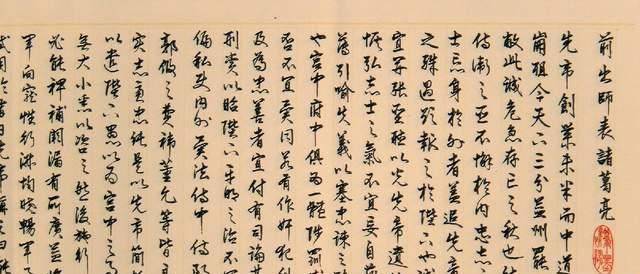 前出師表諸葛亮
先帝創業未半而中道
崩殂今天下三分益州罷
敝此誠危急存亡之秋也
侍衛之臣不懈於內忠志
士忘身於外者蓋追先
之殊遇欲報之於陛下也誠
宜開張聖聽以光先帝遺
恢弘志士之氣不宜妄自
薄引喻失義以塞忠諫之
也宮中府中俱為一體陟罰
否不宜異同若有作奸犯
及為忠善者宜付有司論其
刑賞以昭陛下平明之治不
偏私使內外異法侍中侍郎
郭攸之費禕董允等皆
實志慮忠純是以先帝簡
以遺陛下愚以為宮中之
無大小悉以咨之然後施行
必能裨補闕漏有所廣益
軍向寵性行淑均曉暢軍
試用於昔日先帝稱之曰能